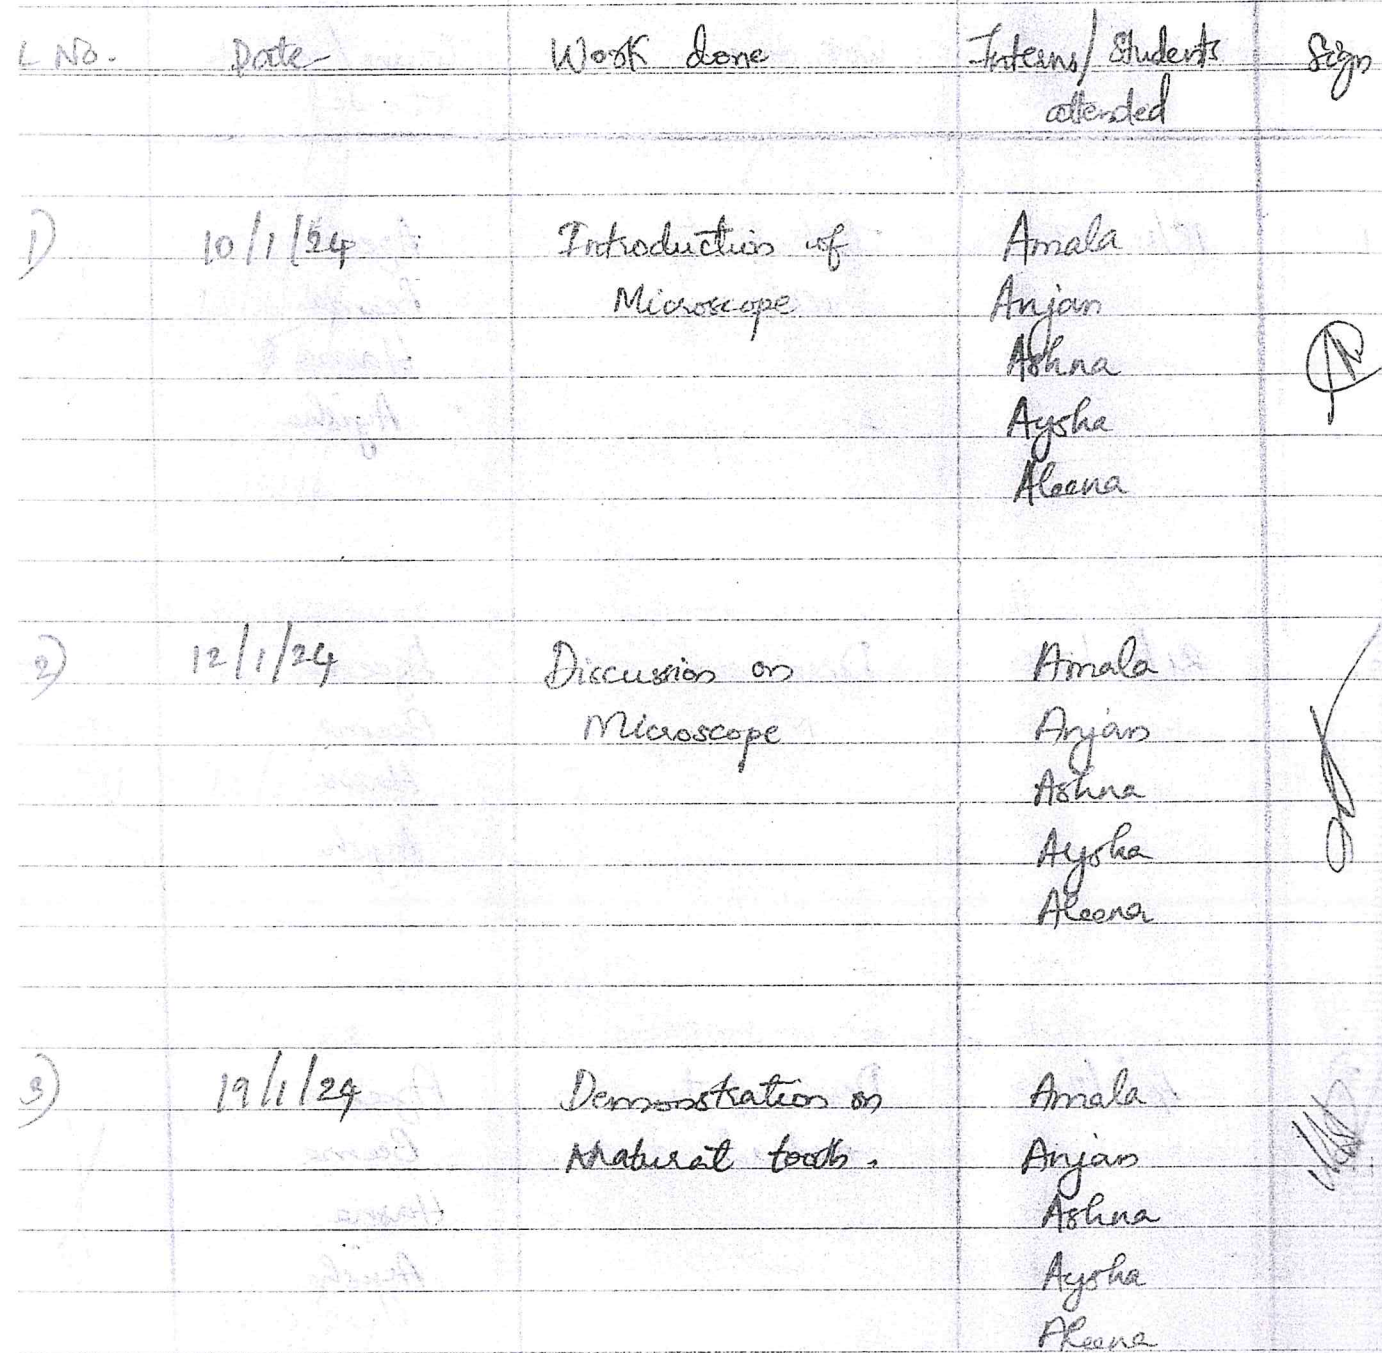 L No. Date Work done Interns/Students Sign
attended
1) 10/1/24 Introduction of Amala
Microscope Anjan
Ashna
Aysha
Aleena
2) 12/1/24 Discussion on Amala
Microscope Anjan
Ashna
Aysha
Aleena
3) 19/1/24 Demonstration on Amala
Anjan
Ashna
Aysha
Aleena